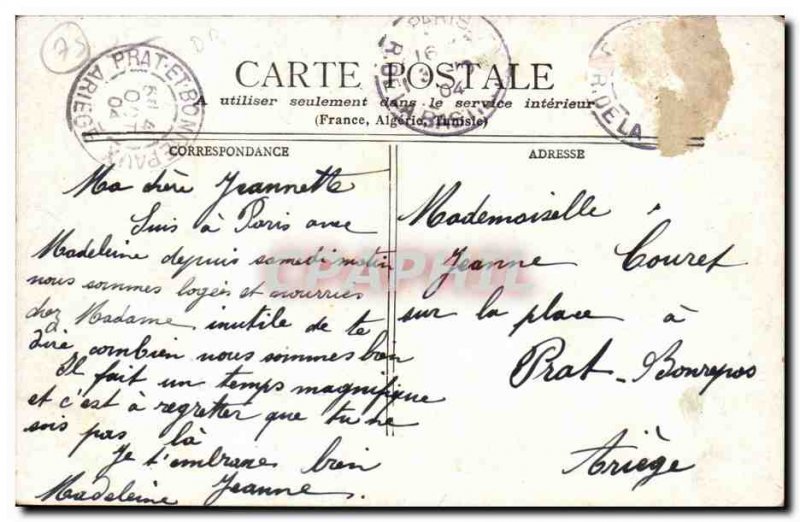 75
CARTE POSTALE
A utiliser seulement dans le service intérieur
(France, Algérie, Tunisie)
PRAT-ET-BON
ARIEGE
OCT
04
PARIS
16
04
R. DE LA
R. DE LA
CORRESPONDANCE
Ma chère Jeannette
Suis à Paris avec
Madeleine depuis samedi matin
nous sommes logées et nourries
chez Madame inutile de te
dire combien nous sommes bien
Il fait un temps magnifique
et c'est à regretter que tu ne
sois pas là
Je t'embrasse bien
Madeleine Jeanne.
ADRESSE
Mademoiselle
Jeanne Couret
sur la place à
Prat-Bonrepos
Ariège
CPAPHIL